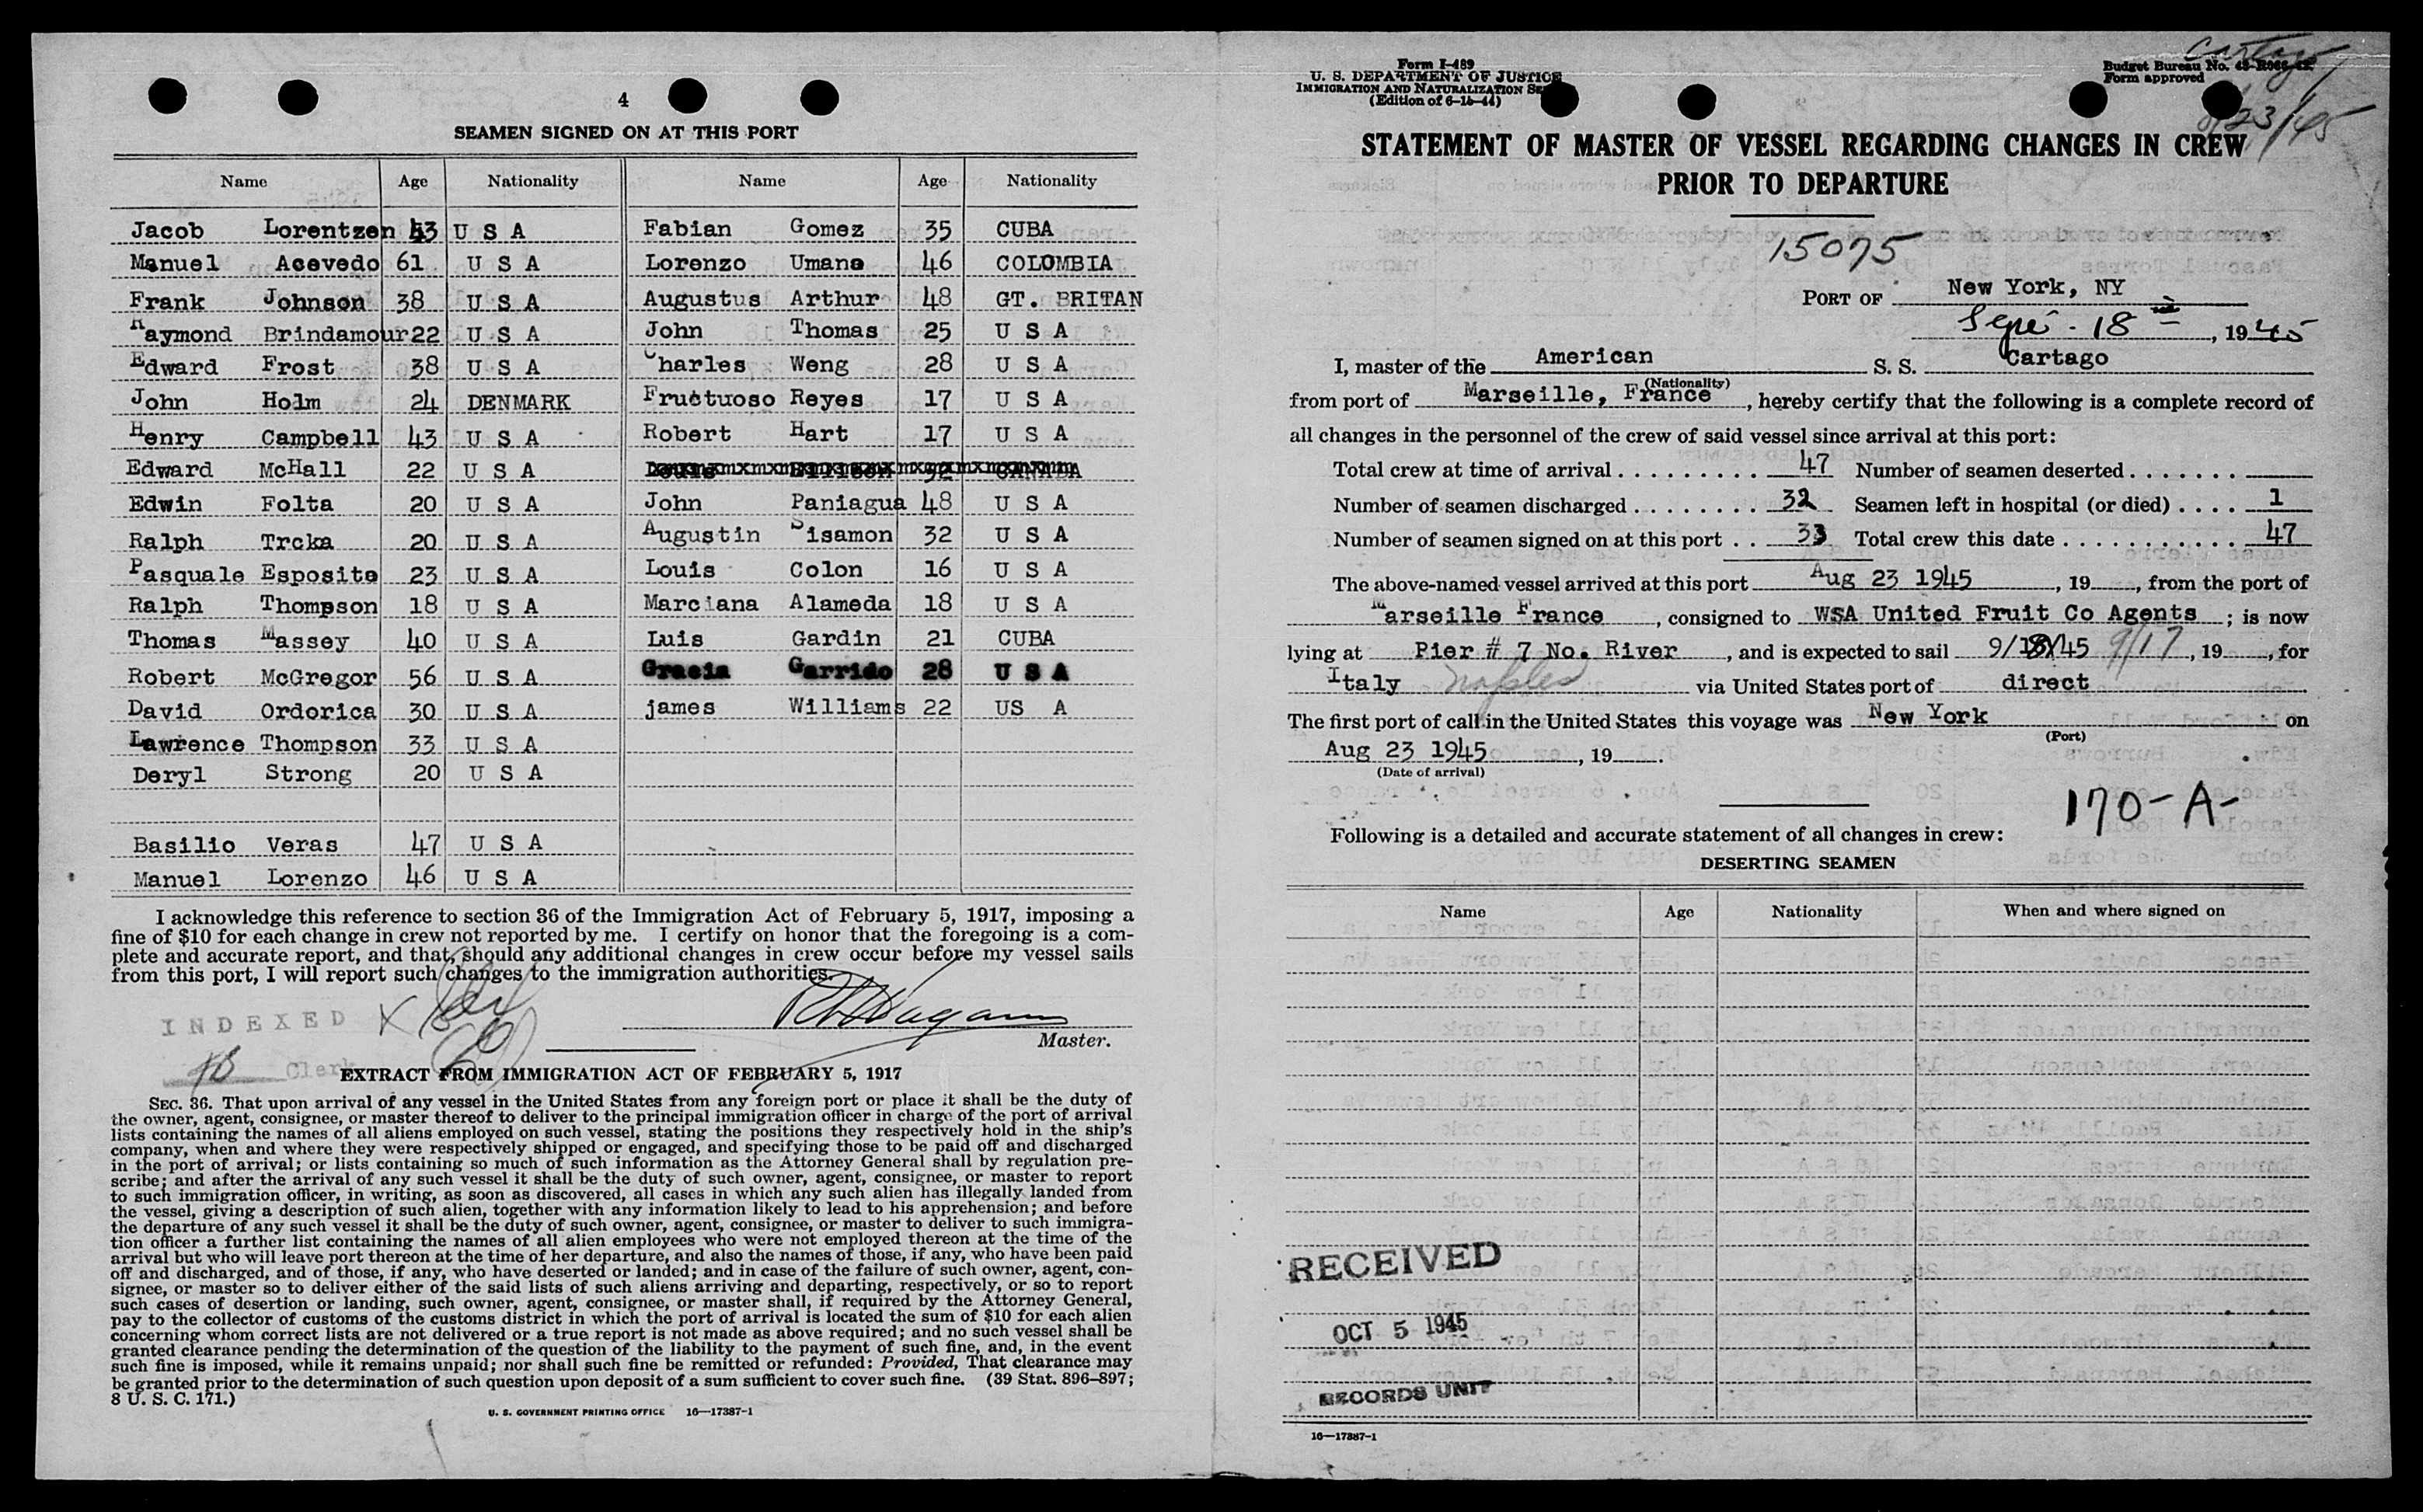 4
SEAMEN SIGNED ON AT THIS PORT
Name Age Nationality Name Age Nationality
Jacob Lorentzen 53 U S A Fabian Gomez 35 CUBA
Manuel Acevedo 61 U S A Lorenzo Umana 46 COLOMBIA
Frank Johnson 38 U S A Augustus Arthur 48 GT. BRITAN
Raymond Brindamour 22 U S A John Thomas 25 U S A
Edward Frost 38 U S A Charles Weng 28 U S A
John Holm 24 DENMARK Fructuoso Reyes 17 U S A
Henry Campbell 43 U S A Robert Hart 17 U S A
Edward McHall 22 U S A
Edwin Folta 20 U S A John Paniagua 48 U S A
Ralph Trcka 20 U S A Augustin Sisamon 32 U S A
Pasquale Esposito 23 U S A Louis Colon 16 U S A
Ralph Thompson 18 U S A Marciana Alameda 18 U S A
Thomas Massey 40 U S A Luis Gardin 21 CUBA
Robert McGregor 56 U S A Gracia Garrido 28 U S A
David Ordorica 30 U S A james Williams 22 US A
Lawrence Thompson 33 U S A
Deryl Strong 20 U S A
Basilio Veras 47 U S A
Manuel Lorenzo 46 U S A
I acknowledge this reference to section 36 of the Immigration Act of February 5, 1917, imposing a
fine of $10 for each change in crew not reported by me. I certify on honor that the foregoing is a com-
plete and accurate report, and that, should any additional changes in crew occur before my vessel sails
from this port, I will report such changes to the immigration authorities.
INDEXED X
Master.
Clerk
EXTRACT FROM IMMIGRATION ACT OF FEBRUARY 5, 1917
SEC. 36. That upon arrival of any vessel in the United States from any foreign port or place it shall be the duty of
the owner, agent, consignee, or master thereof to deliver to the principal immigration officer in charge of the port of arrival
lists containing the names of all aliens employed on such vessel, stating the positions they respectively hold in the ship's
company, when and where they were respectively shipped or engaged, and specifying those to be paid off and discharged
in the port of arrival; or lists containing so much of such information as the Attorney General shall by regulation pre-
scribe; and after the arrival of any such vessel it shall be the duty of such owner, agent, consignee, or master to report
to such immigration officer, in writing, as soon as discovered, all cases in which any such alien has illegally landed from
the vessel, giving a description of such alien, together with any information likely to lead to his apprehension; and before
the departure of any such vessel it shall be the duty of such owner, agent, consignee, or master to deliver to such immigra-
tion officer a further list containing the names of all alien employees who were not employed thereon at the time of the
arrival but who will leave port thereon at the time of her departure, and also the names of those, if any, who have been paid
off and discharged, and of those, if any, who have deserted or landed; and in case of the failure of such owner, agent, con-
signee, or master so to deliver either of the said lists of such aliens arriving and departing, respectively, or so to report
such cases of desertion or landing, such owner, agent, consignee, or master shall, if required by the Attorney General,
pay to the collector of customs of the customs district in which the port of arrival is located the sum of $10 for each alien
concerning whom correct lists are not delivered or a true report is not made as above required; and no such vessel shall be
granted clearance pending the determination of the question of the liability to the payment of such fine, and, in the event
such fine is imposed, while it remains unpaid; nor shall such fine be remitted or refunded: Provided, That clearance may
be granted prior to the determination of such question upon deposit of a sum sufficient to cover such fine. (39 Stat. 896–897;
8 U. S. C. 171.)
U. S. GOVERNMENT PRINTING OFFICE 16—17387-1
Form I-489
U. S. DEPARTMENT OF JUSTICE
IMMIGRATION AND NATURALIZATION
(Edition of 6-15-44)
Cartago
Budget Bureau No.
Form approved
8/23/45
STATEMENT OF MASTER OF VESSEL REGARDING CHANGES IN CREW
PRIOR TO DEPARTURE
15075
PORT OF New York, NY
Sept. 18, 1945
I, master of the American S. S. Cartago
(Nationality)
from port of Marseille, France, hereby certify that the following is a complete record of
all changes in the personnel of the crew of said vessel since arrival at this port:
Total crew at time of arrival 47 Number of seamen deserted
Number of seamen discharged 32 Seamen left in hospital (or died) 1
Number of seamen signed on at this port 33 Total crew this date 47
The above-named vessel arrived at this port Aug 23 1945, 19, from the port of
Marseille France, consigned to WSA United Fruit Co Agents; is now
lying at Pier # 7 No. River, and is expected to sail 9/18/45 9/17, 19, for
Italy Naples via United States port of direct
The first port of call in the United States this voyage was New York on
(Port)
Aug 23 1945, 19.
(Date of arrival)
170-A-
Following is a detailed and accurate statement of all changes in crew:
DESERTING SEAMEN
Name Age Nationality When and where signed on
RECEIVED
OCT 5 1945
RECORDS UNIT
16—17387-1